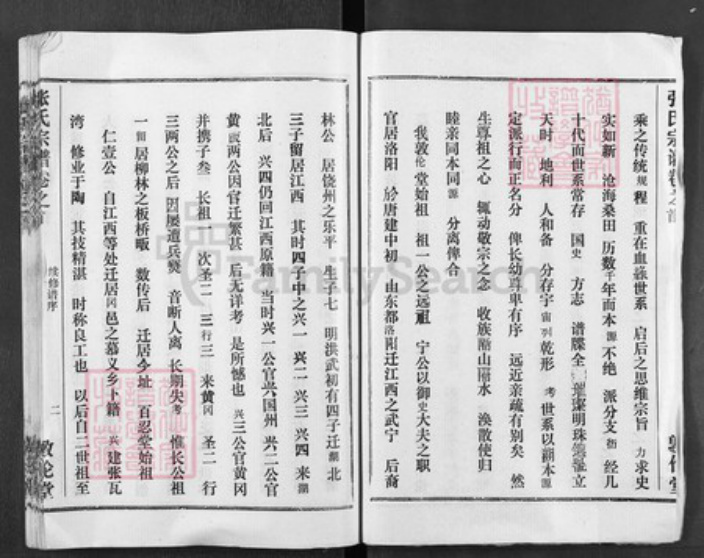 张氏宗谱卷之首
乘之传统规程 重在血缘世系 启后之思维宗旨 力求史
实如新 沧海桑田 历数千年而本源不绝 派分支衍 经几
十代而世系常存 国史 方志 谱牒全 璀璨明珠 立
天时 地利 人和备 分存宇宙列乾形 考世系以溯本源
定派行而正名分 俾长幼尊卑有序 远近亲疏有别矣 然
生尊祖之心 辄动敬宗之念 收族 山 水 涣散使归
睦亲同本同源 分离俾合
我敦伦堂始祖 祖一公之远祖 宁公以御史大夫之职
官居洛阳 于唐建中初 山东都洛阳迁江西之武宁 后裔
林公 居饶州之乐平 生子七 明洪武初有四子迁湖北
三子留居江西 其时四子中之兴一 兴二兴三 兴四 来湖
北后 兴四仍回江西原籍 当时兴一公官兴国州 兴二公官
黄 两公因官迁繁甚 后无详考 是所憾也 兴三公官黄冈
并携子叁 长祖一 次圣二 三行三 来黄冈 圣二 行
三两公之后 因屡遭兵燹 音断人离 长期失考 惟长公祖
一留居柳林之板桥畈 数传后 迁居今址 百忍堂始祖
仁壹公 自江西等处迁居冈邑之慕义乡卜籍 兴建张瓦
湾 修业于陶 其技精湛 时称良工也 以后自二世祖至
张氏宗谱卷之首
续修谱序
二
敦伦堂
FamilySearch